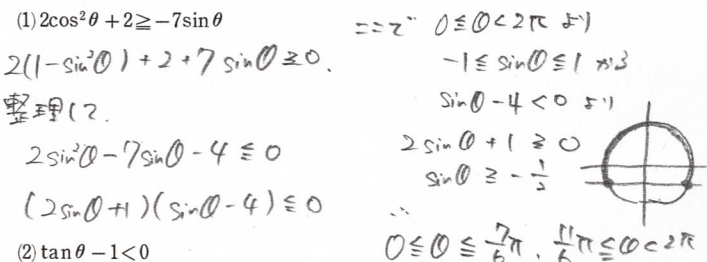 (1) 2cos²θ+2≧−7sinθ
2(1−sin²θ)+2+7sinθ≧0.
整理して.
2sin²θ−7sinθ−4≦0
(2sinθ+1)(sinθ−4)≦0
(2) tanθ−1<0
ここで 0≦θ<2π より
−1≦sinθ≦1 から
sinθ−4<0 より
2sinθ+1≧0
sinθ≧−1/2
∴
0≦θ≦7/6π, 11/6π≦θ<2π